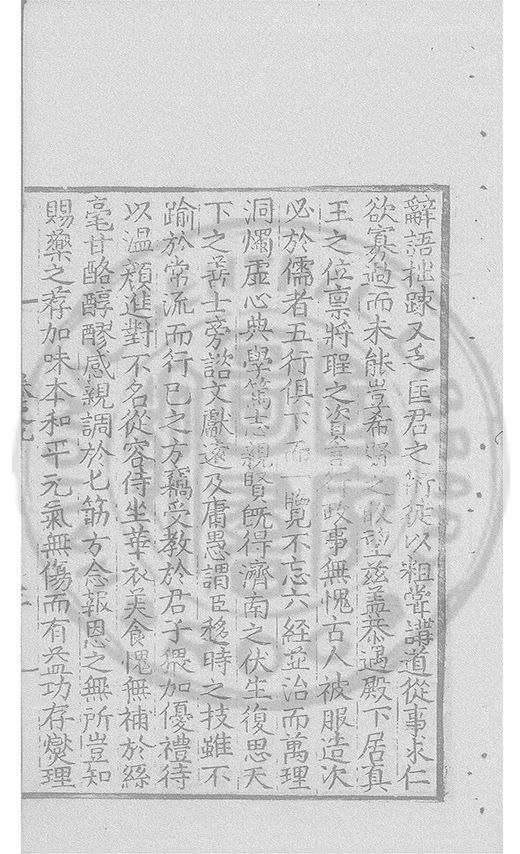 辭語拙踈又乏匡君之術徒以粗嘗講道從事求仁
欲寡過而未能豈希賢之敢望茲盖恭遇殿下居真
王之位禀將聖之資言行政事無愧古人被服造次
必於儒者五行俱下而一覽不忘六經並治而萬理
洞燭虛心典學篤志親賢旣得濟南之伏生復思天
下之善士旁諮文獻遠及庸愚謂臣移時之技雖不
踰於常流而行已之方竊受教於君子猥加優禮待
以温顔進對不名從容侍坐華衣美食愧無補於絲
毫甘酪醇醪感親調於匕筯方念報恩之無所豈知
賜藥之荐加味本和平元氣無傷而有益功存燮理